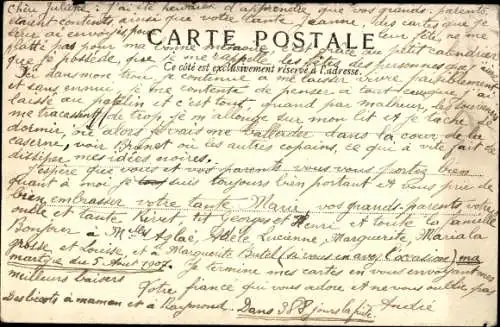 Chère Juliette : J'ai été heureux d'apprendre que vos grands-parents
étaient contents, ainsi que votre tante Jeanne, des cartes que je
leur ai envoyées pour leur fête, ne me
CARTE POSTALE
flatte pas pour ma bonne mémoire, c'est grâce au petit calendrier
que je possède, que je me rappelle les fêtes des personnes que j'ai
Ce côté est exclusivement réservé à l'adresse.
Ici dans mon trou, je continue de me faire vivre paisiblement
et sans ennui, je me contente de penser à tout ceux que j'ai
laissé au patelin et c'est tout, quand par malheur, les souvenirs
me tracassent de trop, je m'allonge sur mon lit et je tâche de
dormir, ou alors je vais me ballader dans la cour de la
caserne, voir ou les autres copains, ce qui a vite fait de
dissiper mes idées noires.
J'espère que vous et vos parents vous vous portez bien
quant à moi je suis toujours bien portant et vous prie de
bien embrasser votre tante Marie, vos grands-parents votre
oncle et tante Rivet, tit Georges et Henri et toute la famille
Bonjour à Melles Aglaé, Adèle Lucienne, Marguerite, Maria la
grosse et Louise, et à Marguerite Butel (si vous en avez l'occasion) ma
du 5 Août 1907. Je termine mes cartes en vous envoyant mes
meilleurs baisers
Votre fiancé qui vous adore et ne vous oublie pas
Des bécots à maman et à Raymond. Dans 388 jours la fuite. André